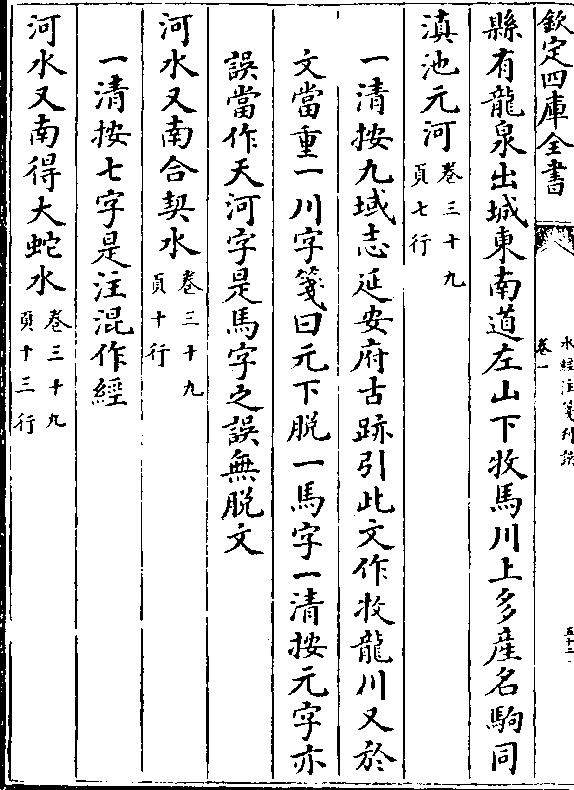 欽定四庫全書
水經注箋刊誤
卷一
縣有龍泉出城東南道左山下牧馬川上多產名駒同
滇池元河
卷三十九
頁七行
一清按九域志延安府古跡引此文作牧龍川又於
文當重一川字箋曰元下脫一馬字一清按元字亦
誤當作天河字是馬字之誤無脫文
河水又南合契水
卷三十九
頁十行
一清按七字是注混作經
河水又南得大蛇水
卷三十九
頁十三行